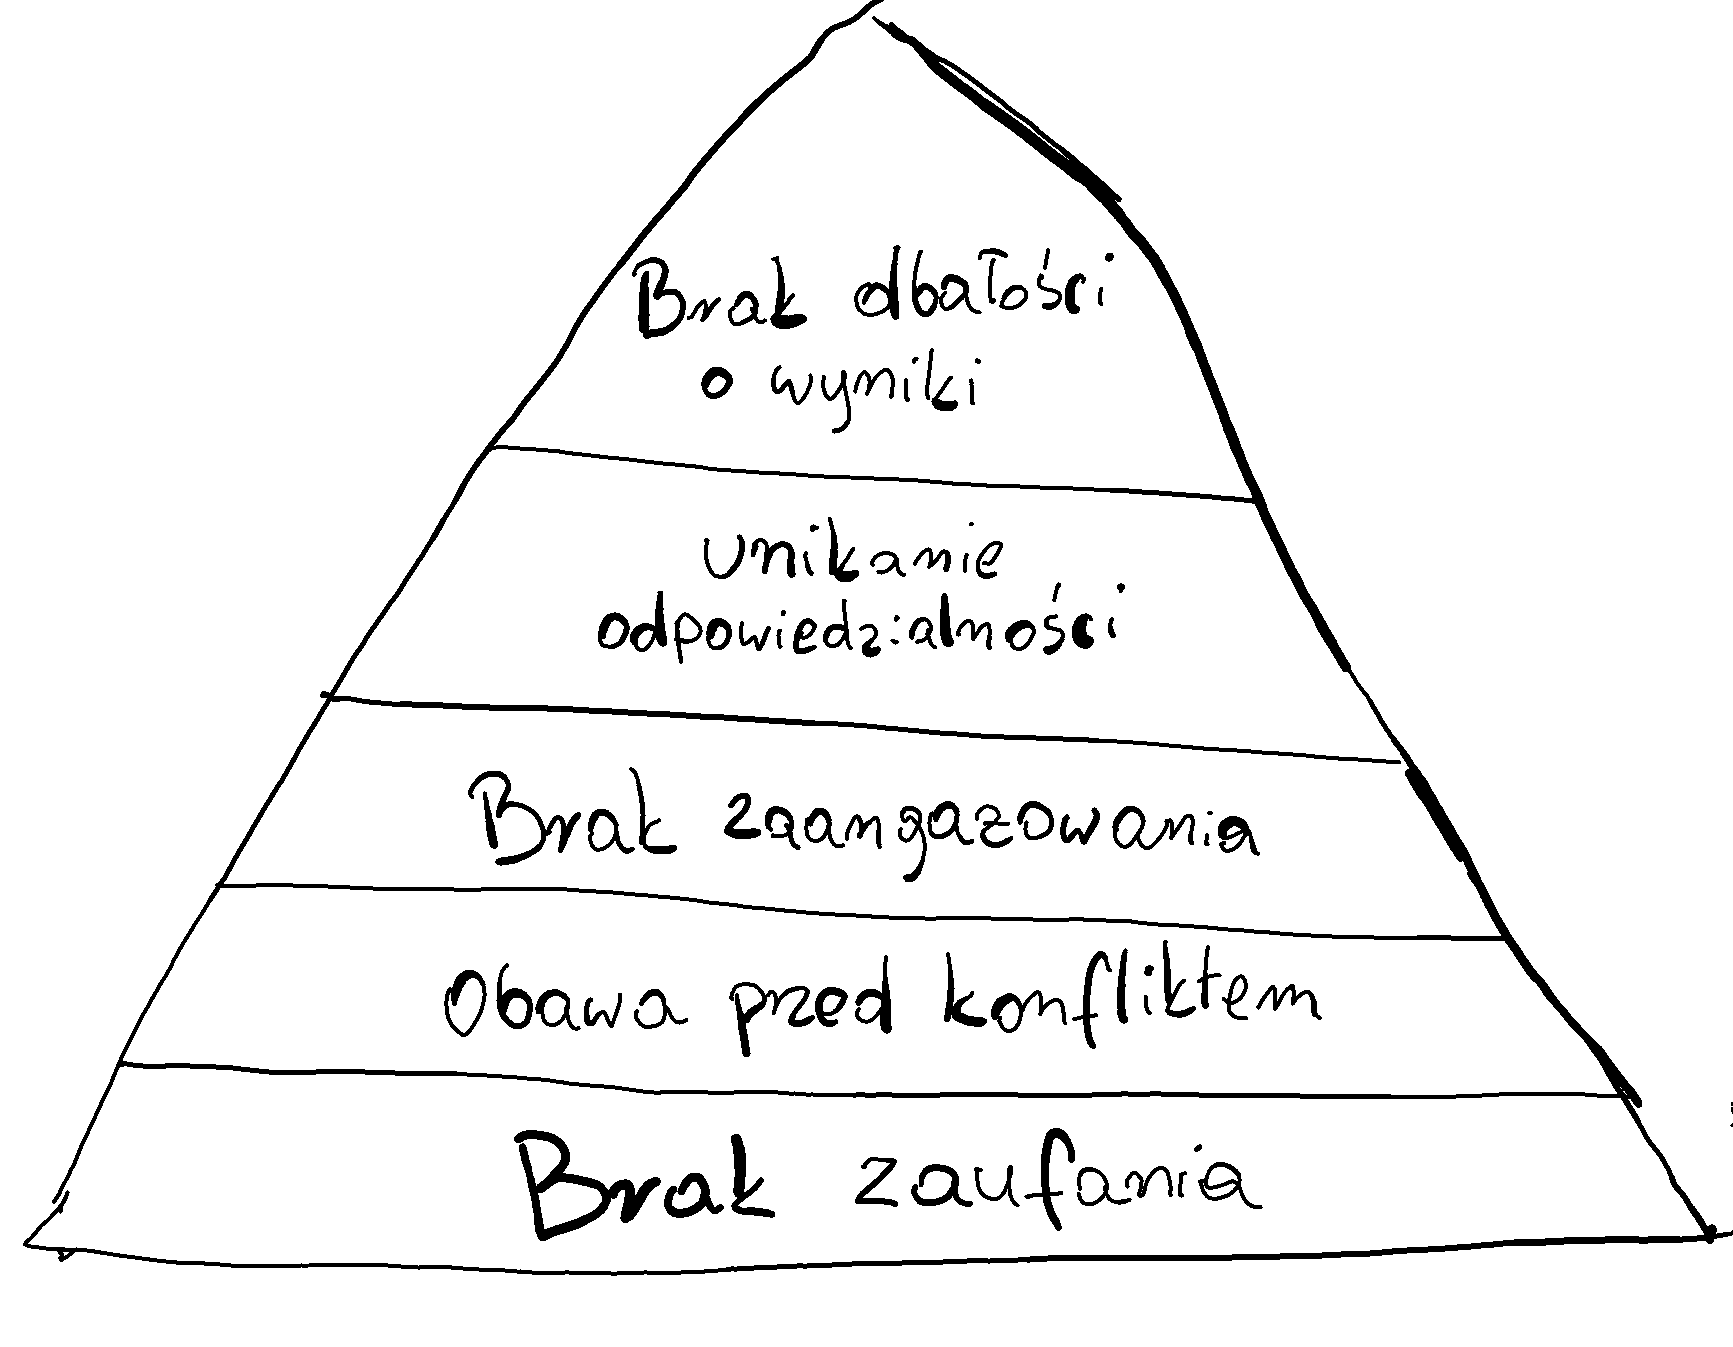 Brak dbałości
o wyniki
unikanie
odpowiedzialności
Brak zaangazowania
Obawa przed konfliktem
Brak zaufania